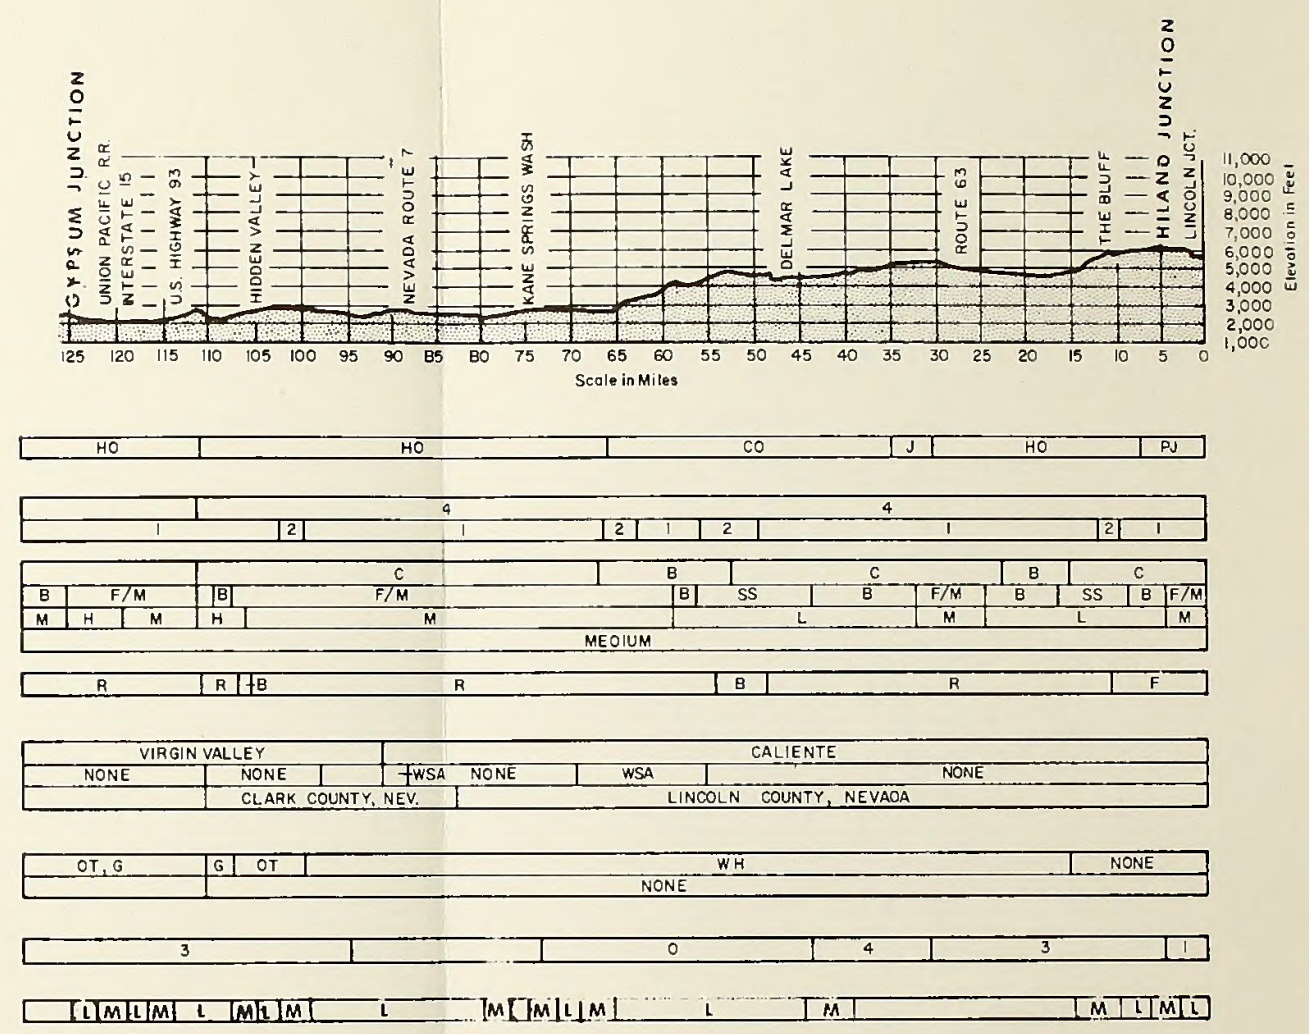 GYPSUM JUNCTION
UNION PACIFIC R.R.
INTERSTATE 15
U.S. HIGHWAY 93
HIDDEN VALLEY
NEVADA ROUTE 7
KANE SPRINGS WASH
DELMAR LAKE
ROUTE 63
THE BLUFF
HILAND JUNCTION
LINCOLN JCT.
11,000
10,000
9,000
8,000
7,000
6,000
5,000
4,000
3,000
2,000
1,000
Elevation in Feet
125 120 115 110 105 100 95 90 85 80 75 70 65 60 55 50 45 40 35 30 25 20 15 10 5 0
Scale in Miles
HO HO CO J HO PJ
4 4
1 2 1 2 1 2 1 2 1
C B C B C
B F/M B F/M B SS B F/M B SS B F/M
M H M H M L M L M
MEDIUM
R R B R B R F
VIRGIN VALLEY CALIENTE
NONE NONE WSA NONE WSA NONE
CLARK COUNTY, NEV. LINCOLN COUNTY, NEVADA
OT, G G OT WH NONE
NONE
3 0 4 3 1
L M L M L M L M L M M L M L M M L M L